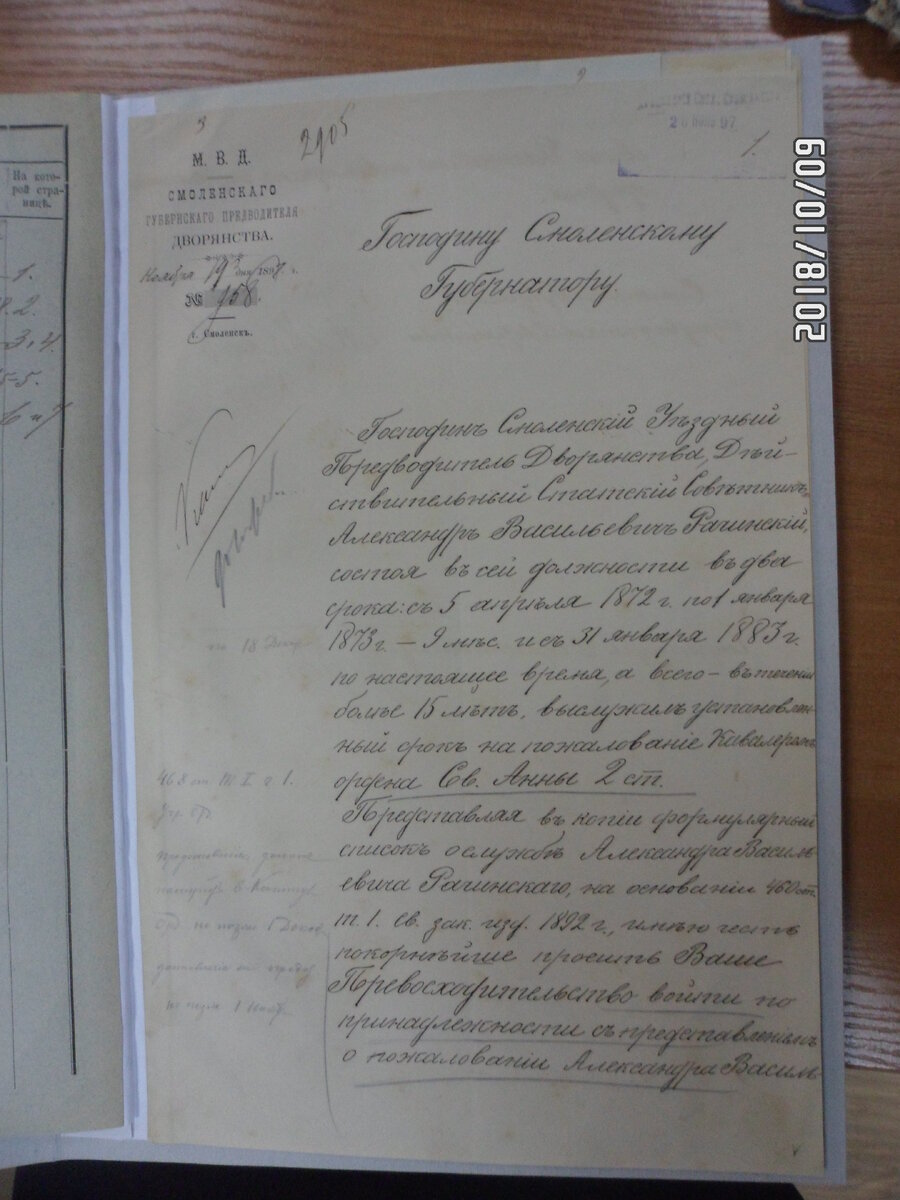 На кото-
рой стра-
ницѣ.
1.
2.
3, 4.
5.
6 и 7
3
2905
20 97
1.
2018/01/09
М. В. Д.
СМОЛЕНСКАГО
ГУБЕРНСКАГО ПРЕДВОДИТЕЛЯ
ДВОРЯНСТВА.
Ноября 19 дня 1897 г.
№ 958.
г. Смоленскъ.
Господину Смоленскому
Губернатору.
Господинъ Смоленскій Уѣздный
Предводитель Дворянства, Дѣй-
ствительный Статскій Совѣтникъ
Александръ Васильевичъ Рачинскій,
состоя въ сей должности въ два
срока: съ 5 апрѣля 1872 г. по 1 января
1873 г. – 9 мѣс. и съ 31 января 1883 г.
по настоящее время, а всего – въ теченіи
болѣе 15 лѣтъ, выслужилъ установлен-
ный срокъ на пожалованіе Кавалеромъ
ордена Св. Анны 2 ст.
Представляя въ копіи формулярный
списокъ о службѣ Александра Василь-
евича Рачинскаго, на основаніи 460 ст.
т. 1. св. зак. изд. 1892 г., имѣю честь
покорнѣйше просить Ваше
Превосходительство войти по
принадлежности съ представленіемъ
о пожалованіи Александра Василь-
18
ст. т. I. ч. 1.